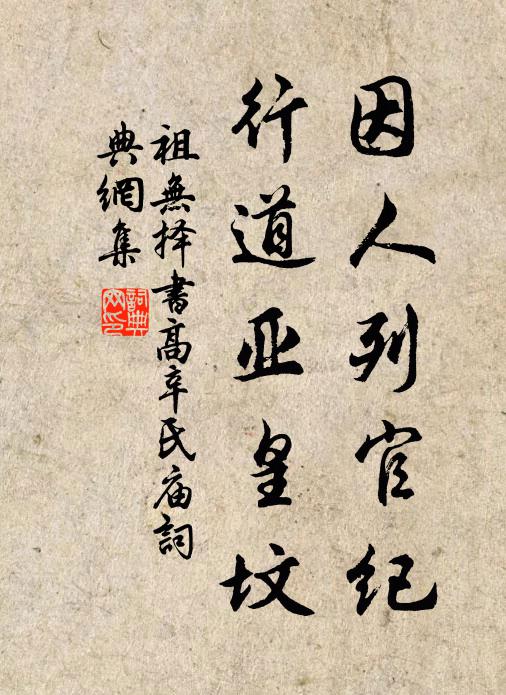 因人列官纪
行道亚皇坟
祖無择书高辛氏庙詞
典網集
詞典
网印